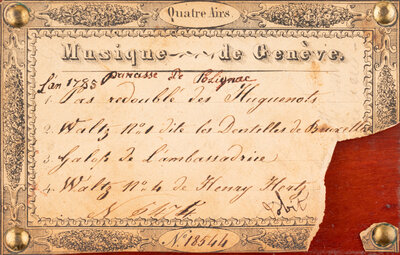 Quatre Airs
Musique de Genève.
L'an 1785 Princesse de Polignac
1. Pas redoublé des Huguenots
2. Waltz No 1 dite les Dentelles de Bruxelles
3. Galop de l'ambassadrice
4. Waltz No 4 de Henry Herz
No. 18544